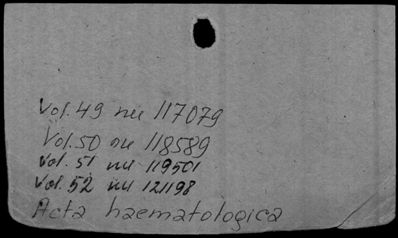 Vol. 49 nu 117079
Vol. 50 nu 118589
Vol. 51 nu 119501
Vol. 52 nu 121198
Acta haematologica